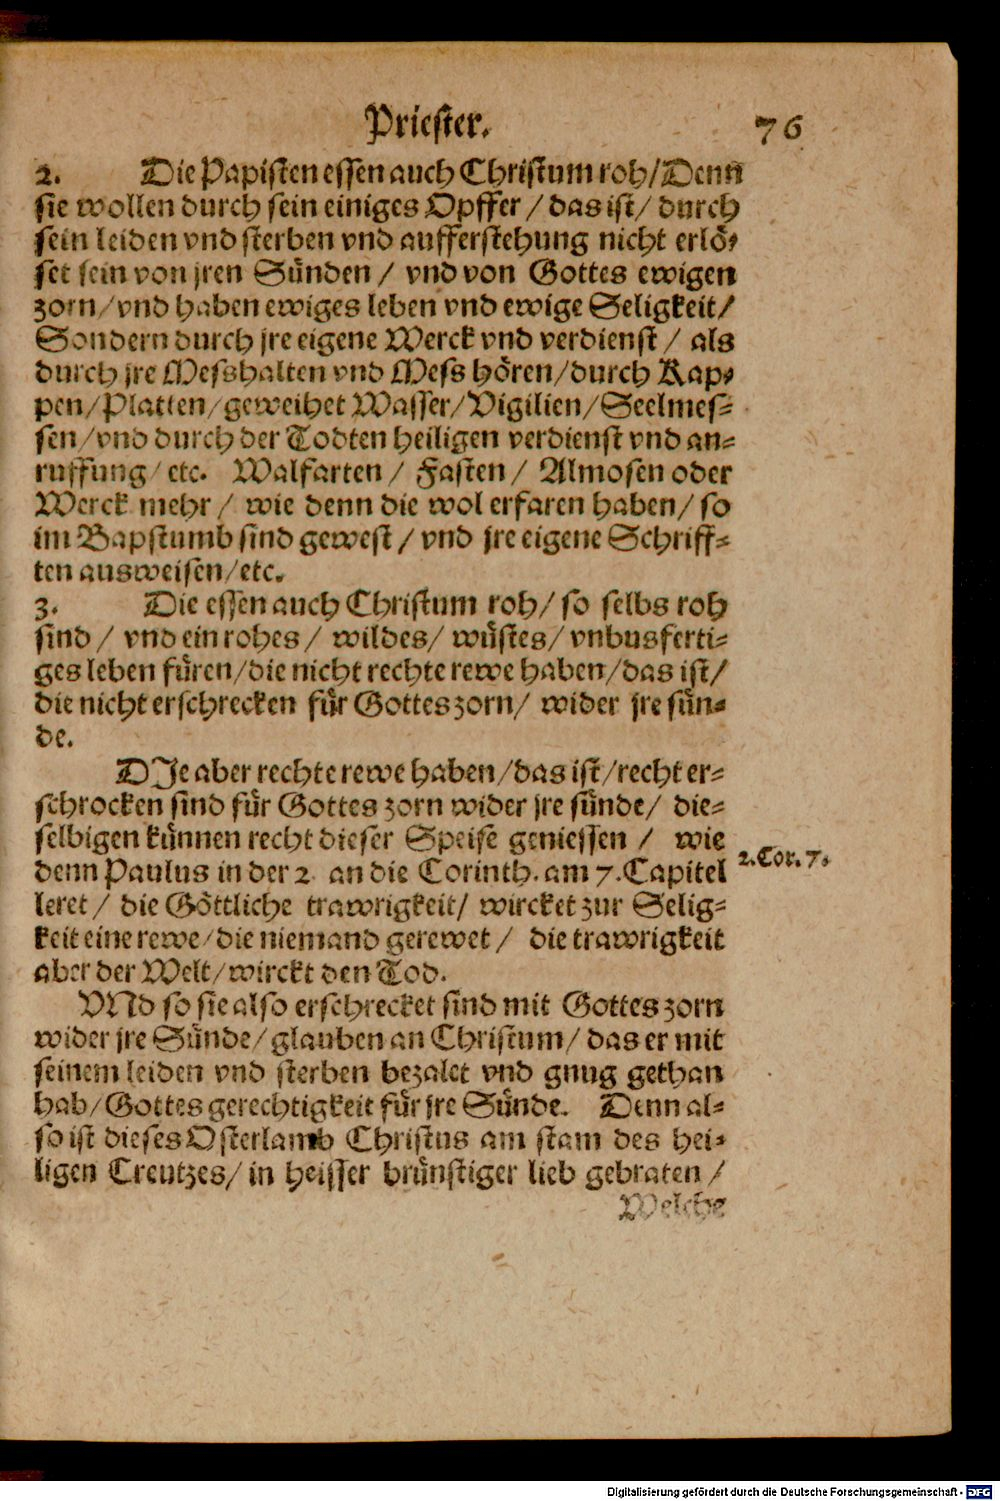 Priester. 76
2. Die Papisten essen auch Christum roh/Denn
sie wollen durch sein einiges Opffer / das ist / durch
sein leiden vnd sterben vnd aufferstehung nicht erlö-
set sein von jren Sünden / vnd von Gottes ewigen
zorn/vnd haben ewiges leben vnd ewige Seligkeit/
Sondern durch jre eigene Werck vnd verdienst / als
durch jre Messhalten vnd Mess hören/durch Kap-
pen/Platten/geweihet Wasser/Vigilien/Seelmes-
sen/vnd durch der Todten heiligen verdienst vnd an-
ruffung/etc. Walfarten / Fasten / Almosen oder
Werck mehr / wie denn die wol erfaren haben/ so
im Bapstumb sind gewest / vnd jre eigene Schriff-
ten ausweisen/etc.
3. Die essen auch Christum roh/ so selbs roh
sind / vnd ein rohes / wildes/ wüstes/ vnbusferti-
ges leben füren/die nicht rechte rewe haben/das ist/
die nicht erschrecken für Gottes zorn/ wider jre sün-
de.
DIe aber rechte rewe haben/das ist/recht er-
schrocken sind für Gottes zorn wider jre sünde/ die-
selbigen künnen recht dieser Speise geniessen / wie
denn Paulus in der 2 an die Corinth. am 7. Capitel
2. Cor. 7.
leret / die Göttliche trawrigkeit/ wircket zur Selig-
keit eine rewe/die niemand gerewet / die trawrigkeit
aber der Welt/wirckt den Tod.
VNd so sie also erschrecket sind mit Gottes zorn
wider jre Sünde/glauben an Christum/ das er mit
seinem leiden vnd sterben bezalet vnd gnug gethan
hab/Gottes gerechtigkeit für jre Sünde. Denn al-
so ist dieses Osterlamb Christus am stam des hei-
ligen Creutzes/ in heisser brünstiger lieb gebraten /
Welche
Digitalisierung gefördert durch die Deutsche Forschungsgemeinschaft - DFG